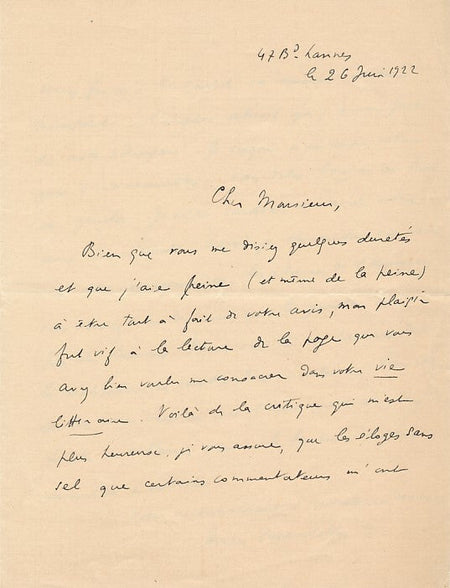 47 Bd Lannes
le 26 Juin 1922
Cher Monsieur,
Bien que vous me disiez quelques duretés
et que j'aie peine (et même de la peine)
à être tout à fait de votre avis, mon plaisir
fut vif à la lecture de la page que vous
avez bien voulu me consacrer dans votre vie
littéraire. Voilà de la critique qui m'est
plus heureuse, je vous assure, que les éloges sans
sel que certains commentateurs m'ont